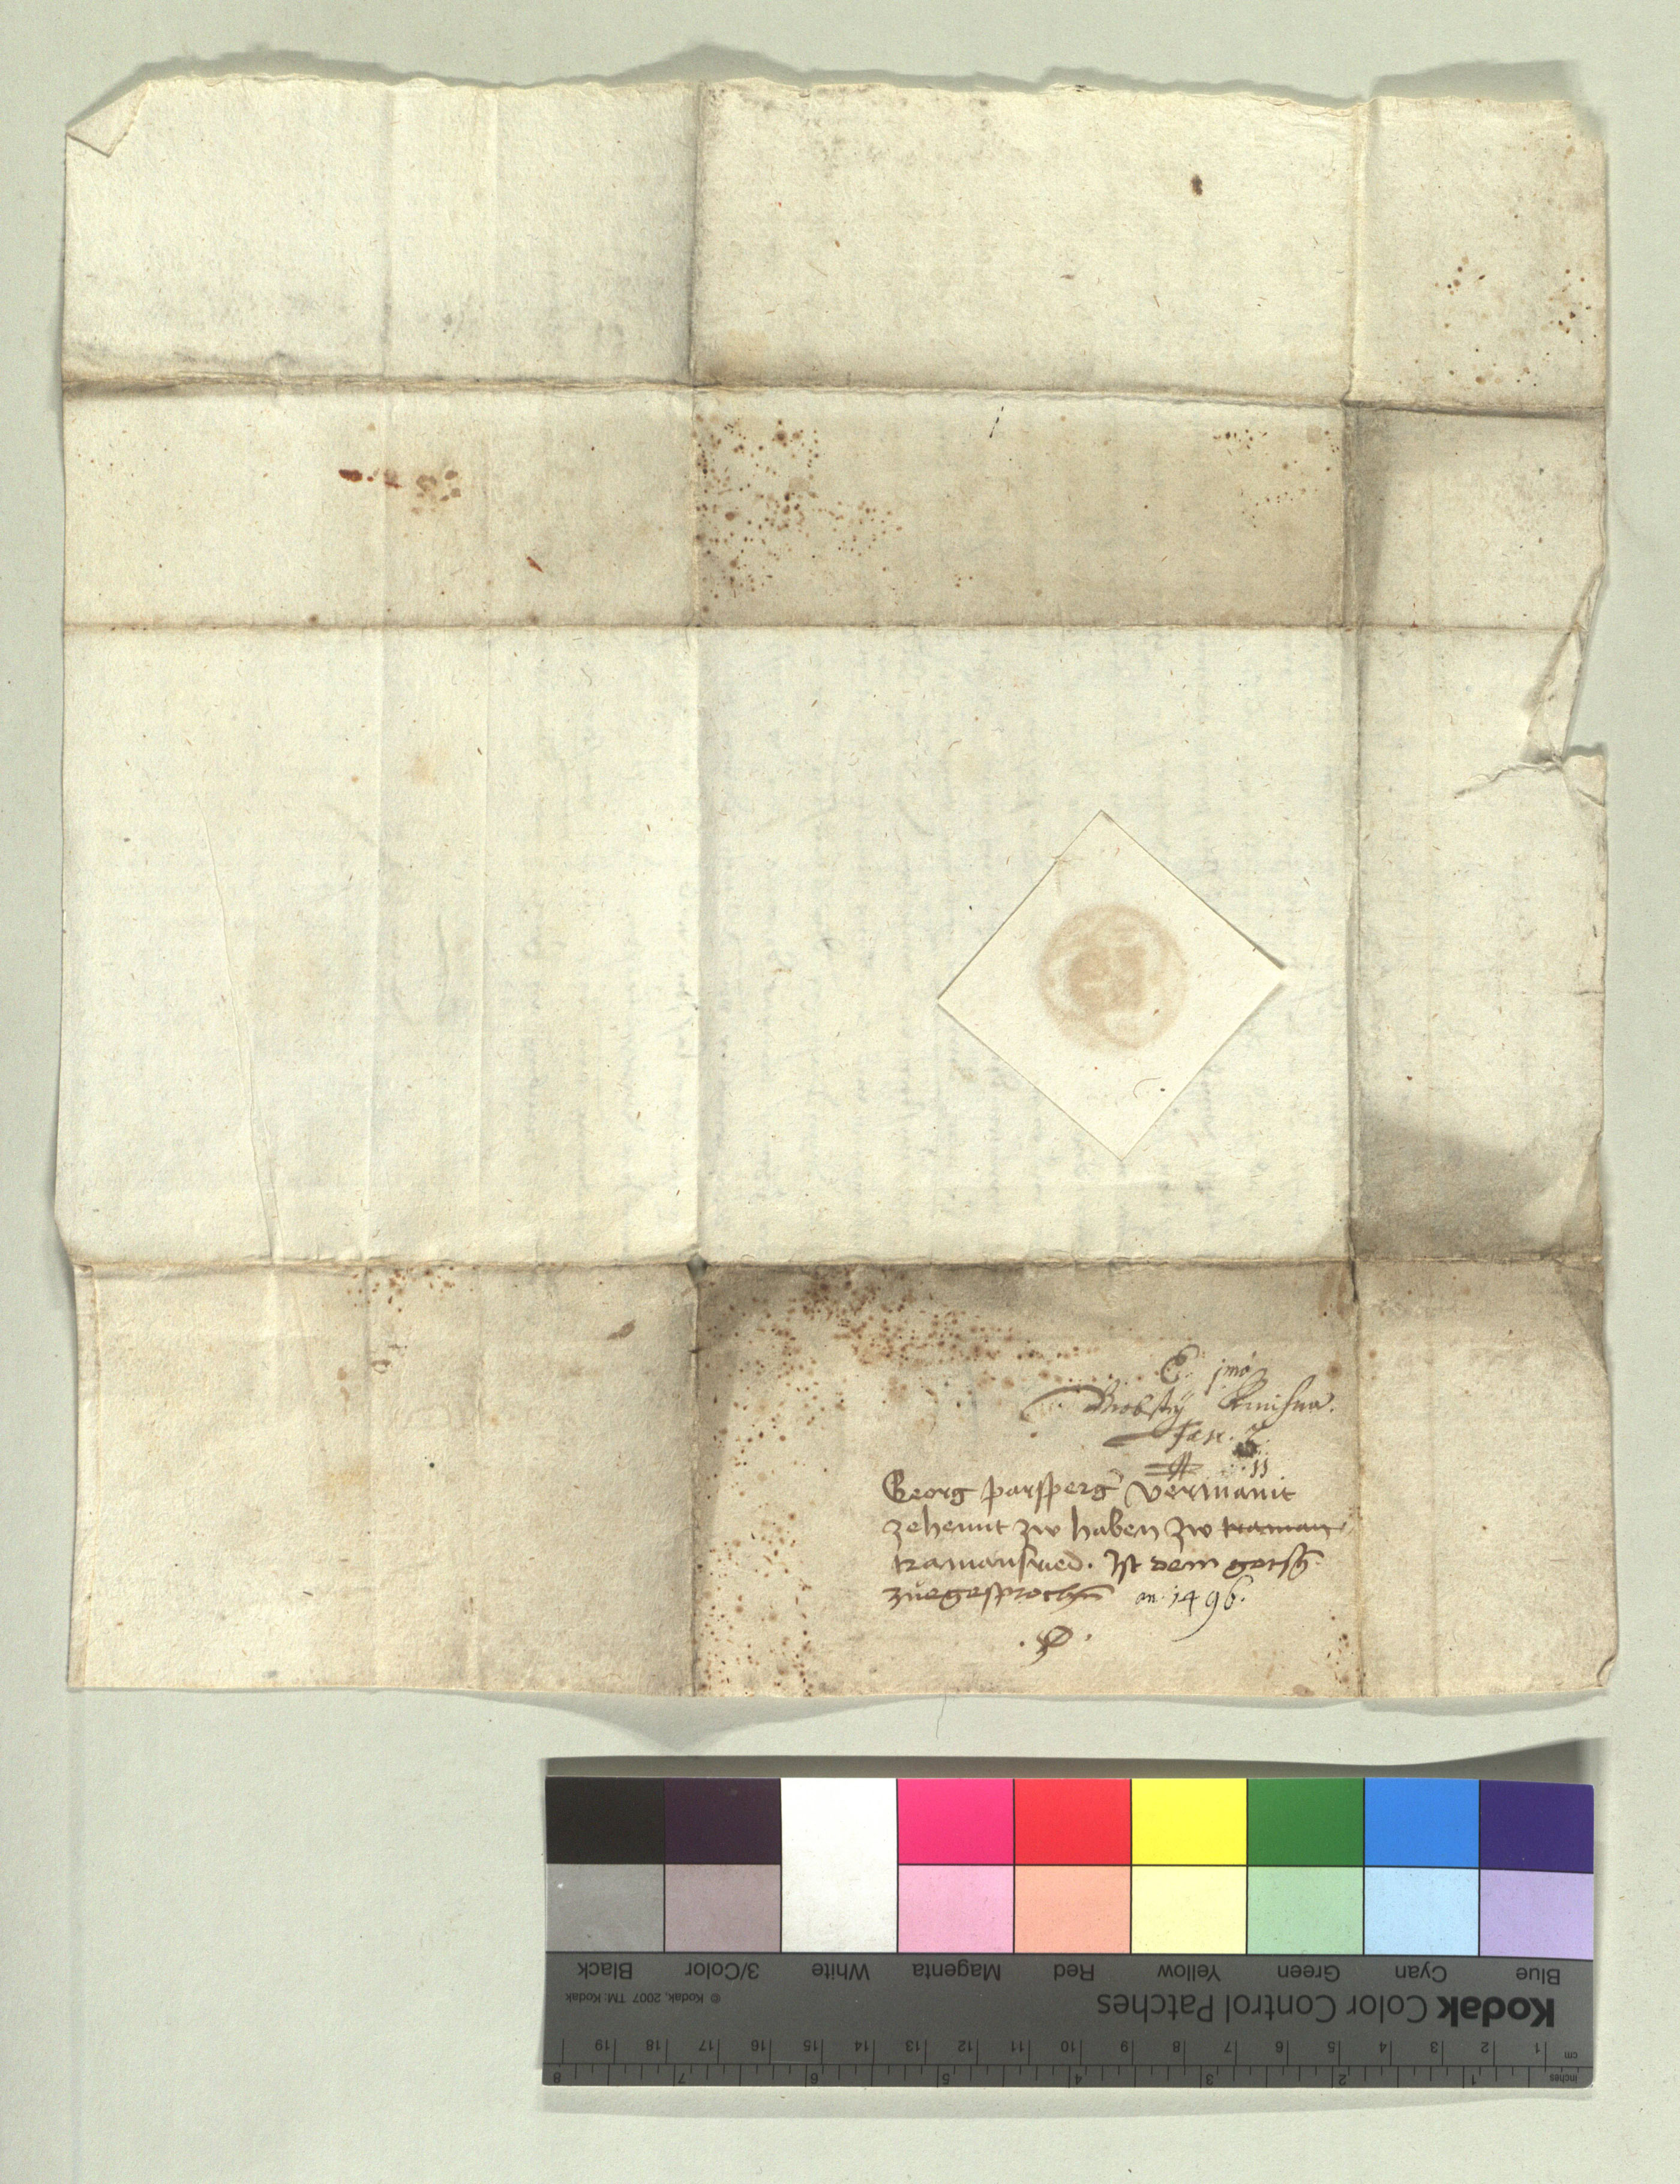 C. jmo
Probstÿ Kinsna.
Fasc. 2.
11
Georg parsperg vermanit
zehennt zw haben zw traman
tramansried. Ist dem gotsh
zuegesprochn an. 1496.
Black 3/Color White Magenta Red Yellow Green Cyan Blue
© Kodak, 2007 TM: Kodak
Kodak Color Control Patches
cm 1 2 3 4 5 6 7 8 9 10 11 12 13 14 15 16 17 18 19
inches 1 2 3 4 5 6 7 8